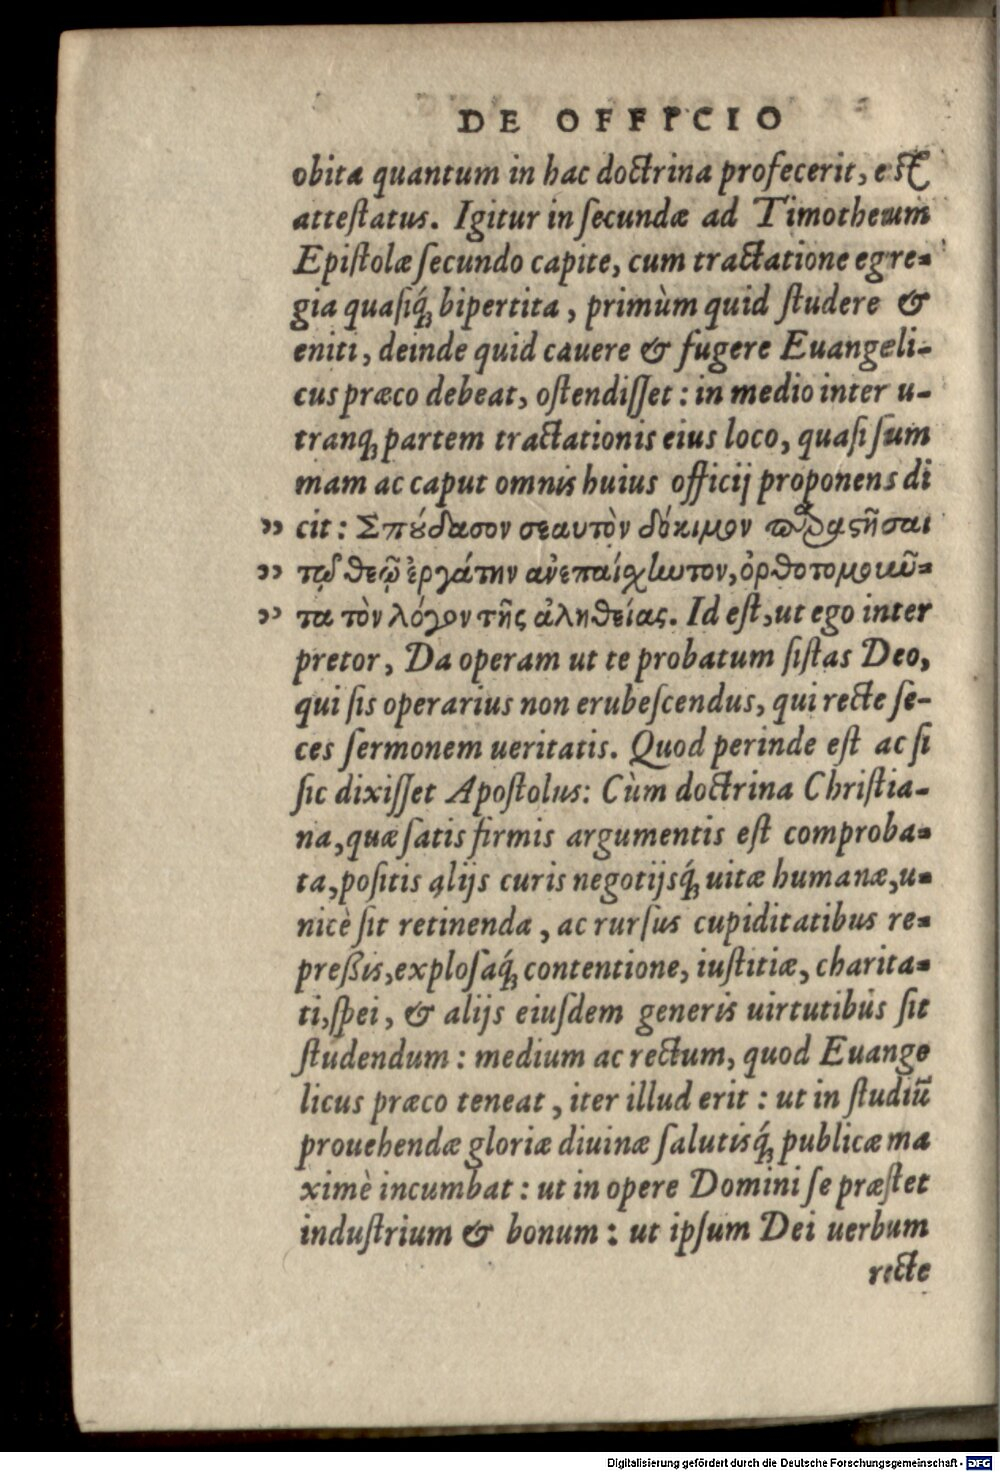 DE OFFICIO
obita quantum in hac doctrina profecerit, est
attestatus. Igitur in secundæ ad Timotheum
Epistolæ secundo capite, cum tractatione egre=
gia quasiq́ꝫ bipertita, primùm quid studere &
eniti, deinde quid cauere & fugere Euangeli-
cus præco debeat, ostendisset: in medio inter u-
tranqꝫ partem tractationis eius loco, quasi sum
mam ac caput omnis huius officij proponens di
„ cit: Σπούδασον σεαυτὸν δόκιμον παραστῆσαι
„ τῷ θεῷ ἐργάτην ἀνεπαίσχυντον, ὀρθοτομοιοῦν=
„ τα τὸν λόγον τῆς ἀληθείας. Id est, ut ego inter
pretor, Da operam ut te probatum sistas Deo,
qui sis operarius non erubescendus, qui recte se-
ces sermonem ueritatis. Quod perinde est ac si
sic dixisset Apostolus: Cùm doctrina Christia-
na, quæ satis firmis argumentis est comproba=
ta, positis alijs curis negotijsq́ꝫ uitæ humanæ, u=
nicè sit retinenda, ac rursus cupiditatibus re=
preßis, explosaq́ꝫ contentione, iustitiæ, charita=
ti, spei, & alijs eiusdem generis uirtutibus sit
studendum: medium ac rectum, quod Euange
licus præco teneat, iter illud erit: ut in studiū
prouehendæ gloriæ diuinæ salutisq́ꝫ publicæ ma
ximè incumbat: ut in opere Domini se præstet
industrium & bonum: ut ipsum Dei uerbum
recte
Digitalisierung gefördert durch die Deutsche Forschungsgemeinschaft - DFG